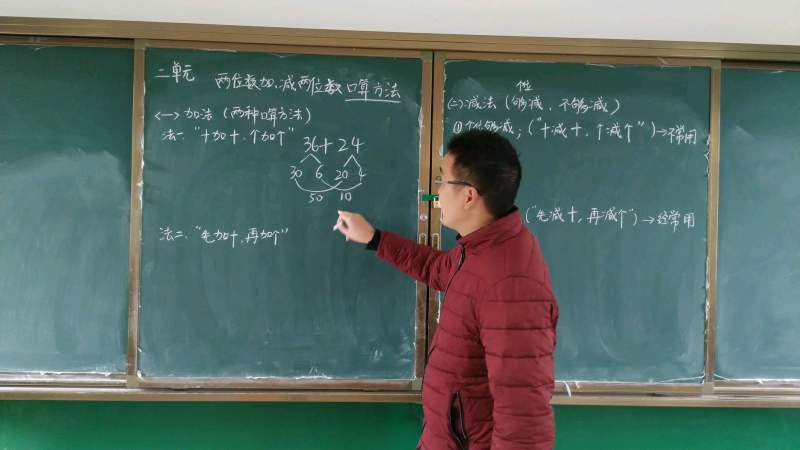 二单元 两位数加、减两位数口算方法
<一>加法（两种口算方法）
法一、“十加十、个加个”
36+24
30 6 20 4
50 10
法二、“先加十、再加个”
位
(二)减法（够减、不够减）
①个够减；(“十减十，个减个”)→不常用
(“先减十，再减个”)→经常用